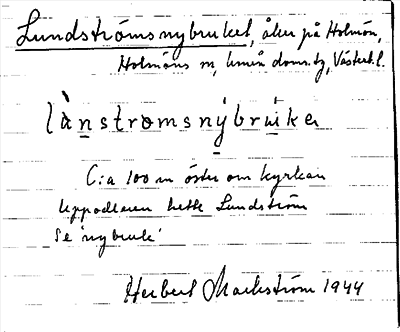 Lundströmsnybruket, åker på Holmön,
Holmöns sn, Umeå doms.tg, Västerb. l.
lànstromsnýbruikeɹ
C:a 100 m öster om kyrkan
Uppodlaren hette Lundström
Se 'nybruk'
Herbert Markström 1944